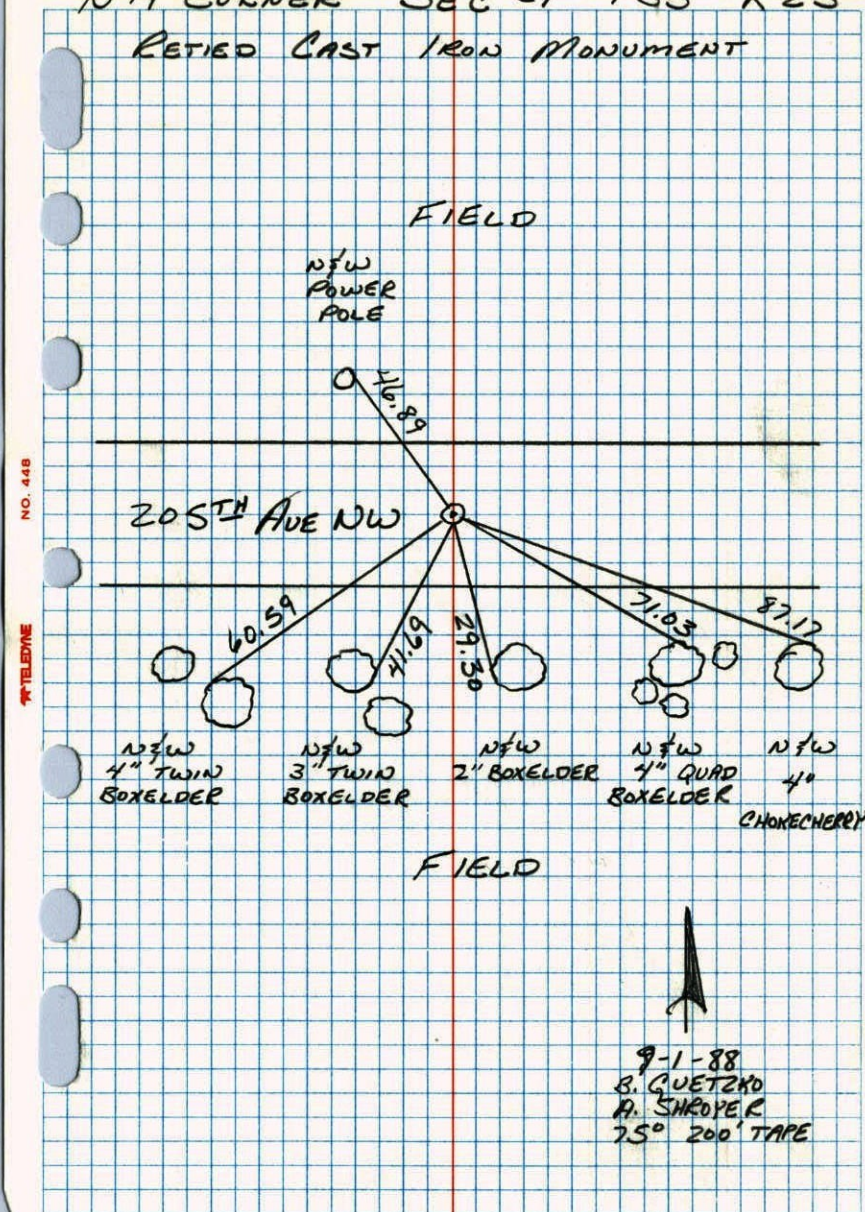 CORNER SEC T33 R25
RETIED CAST IRON MONUMENT
FIELD
N&W
POWER
POLE
46.89
205TH AVE NW
60.59
41.69
29.30
71.03
87.17
N&W
4" TWIN
BOXELDER
N&W
3" TWIN
BOXELDER
N&W
2" BOXELDER
N&W
4" QUAD
BOXELDER
N&W
4"
CHOKECHERRY
FIELD
9-1-88
B. GUETZKO
A. SHROYER
75° 200' TAPE
NO. 448
TELEDYNE